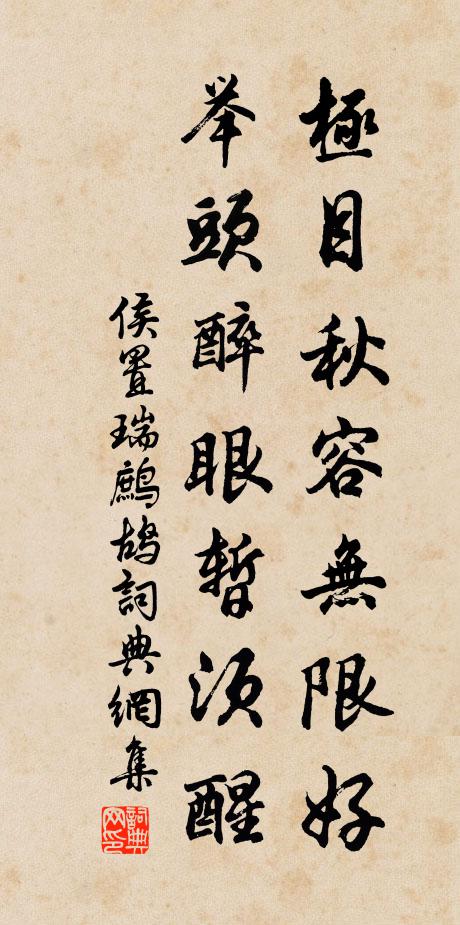 極目秋容無限好
举頭醉眼暫須醒
侯置瑞鷓鴣詞典網集
詞典網印